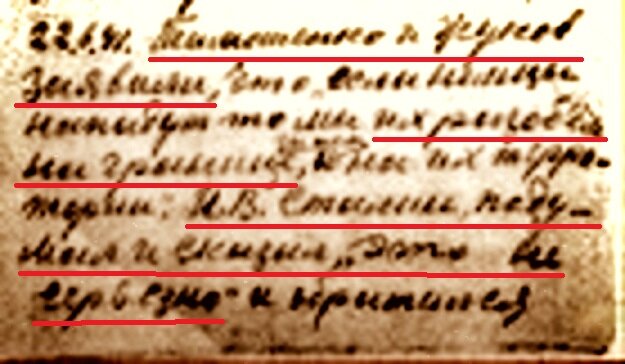 22.6.41. Тимошенко и Жуков
заявили, что если немцы
нападут то мы их разобьем
на границе, а на их терри-
тории. И.В. Сталин поду-
мал и сказал „Это не
серьезно" и